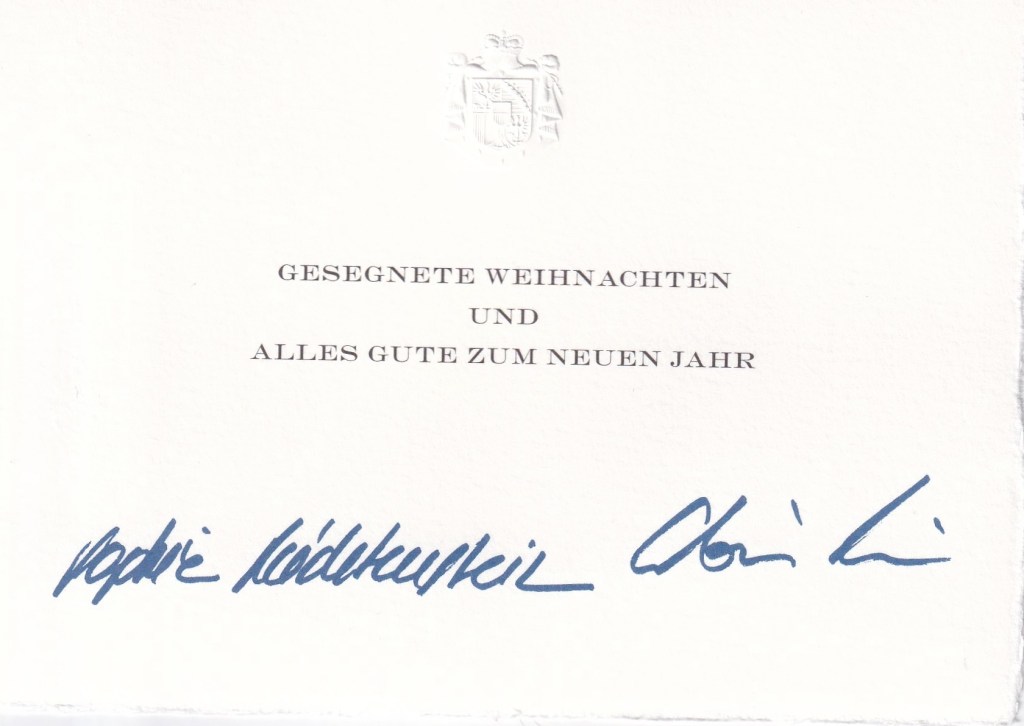 GESEGNETE WEIHNACHTEN
UND
ALLES GUTE ZUM NEUEN JAHR
Sophie Liechtenstein